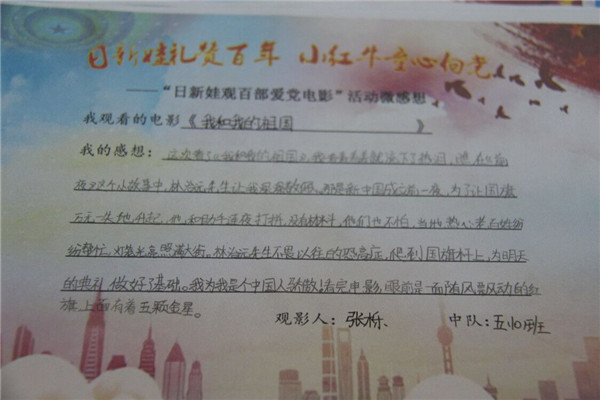 日新娃礼赞百年 小红牛童心向党
——“日新娃观百部爱党电影”活动微感想
我观看的电影《我和我的祖国》
我的感想：这次看了《我和我的祖国》，我看着看着就流下了热泪，
夜》这个小故事中，林治远先生让我很敬佩。那是新中国成立前一夜，为了让国旗
万无一失地升起，他和助手连夜打拼，没有材料，他们也不怕，当地热心老百姓纷
纷帮忙。灯光照满大街。林治远先生不畏以往的恐高症，爬到国旗杆上，为明天
的典礼做好了基础。我为我是个中国人骄傲！看完电影，眼前是一面随风飘动的红
旗上面有着五颗金星。
观影人：张栎 中队：五（1）班